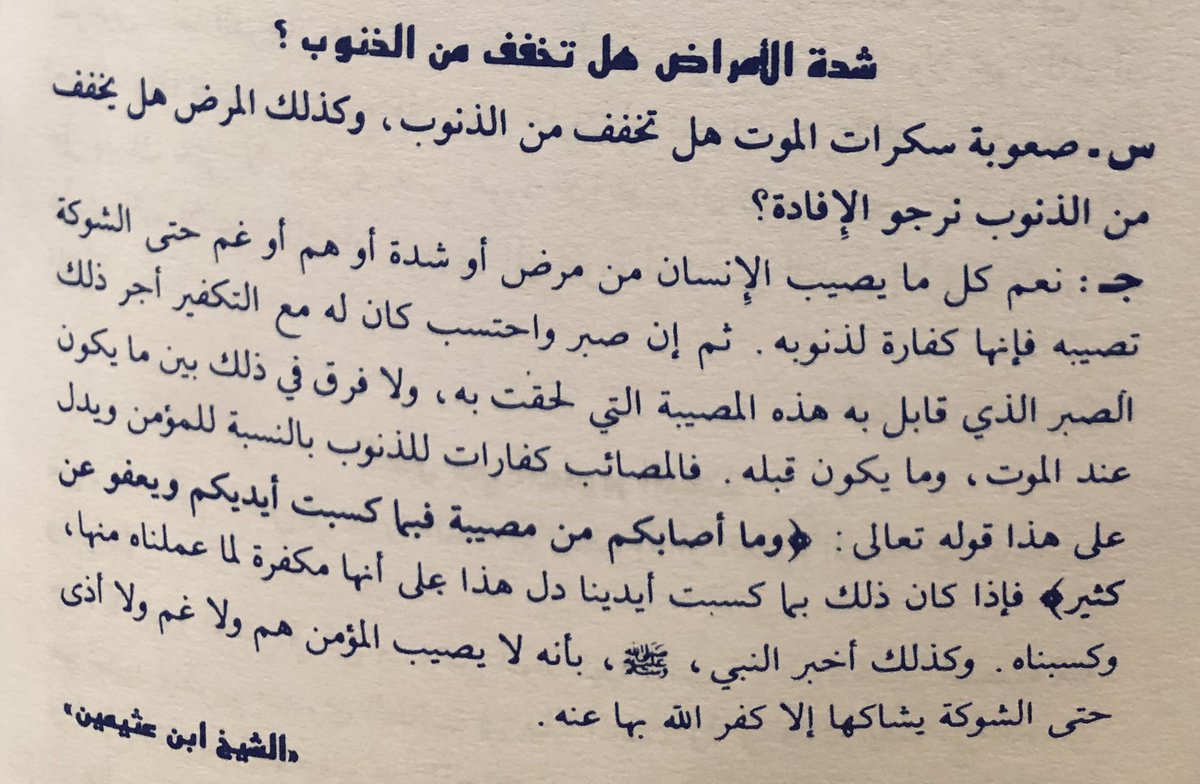 شدة الأمراض هل تخفف من الذنوب ؟
س ـ صعوبة سكرات الموت هل تخفف من الذنوب، وكذلك المرض هل يخفف
من الذنوب نرجو الإِفادة؟
جـ : نعم كل ما يصيب الإِنسان من مرض أو شدة أو هم أو غم حتى الشوكة
تصيبه فإنها كفارة لذنوبه . ثم إن صبر واحتسب كان له مع التكفير أجر ذلك
الصبر الذي قابل به هذه المصيبة التي لحقت به، ولا فرق في ذلك بين ما يكون
عند الموت، وما يكون قبله . فالمصائب كفارات للذنوب بالنسبة للمؤمن ويدل
على هذا قوله تعالى : ﴿وما أصابكم من مصيبة فبما كسبت أيديكم ويعفو عن
كثير﴾ فإذا كان ذلك بما كسبت أيدينا دل هذا على أنها مكفرة لما عملناه منها،
وكسبناه . وكذلك أخبر النبي، ﷺ، بأنه لا يصيب المؤمن هم ولا غم ولا أذى
حتى الشوكة يشاكها إلا كفر الله بها عنه .
«الشيخ ابن عثيمين»